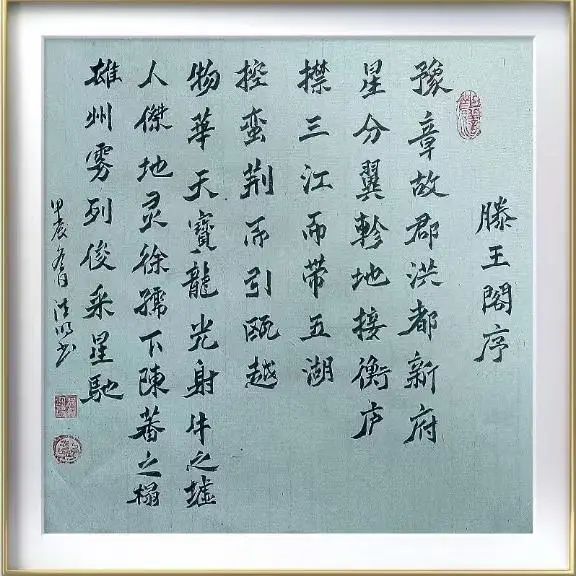 滕王閣序
豫章故郡洪都新府
星分翼軫地接衡庐
襟三江而带五湖
控蛮荆而引瓯越
物華天寶龍光射牛之墟
人傑地灵徐孺下陳蕃之榻
雄州雾列俊采星馳
甲辰
书